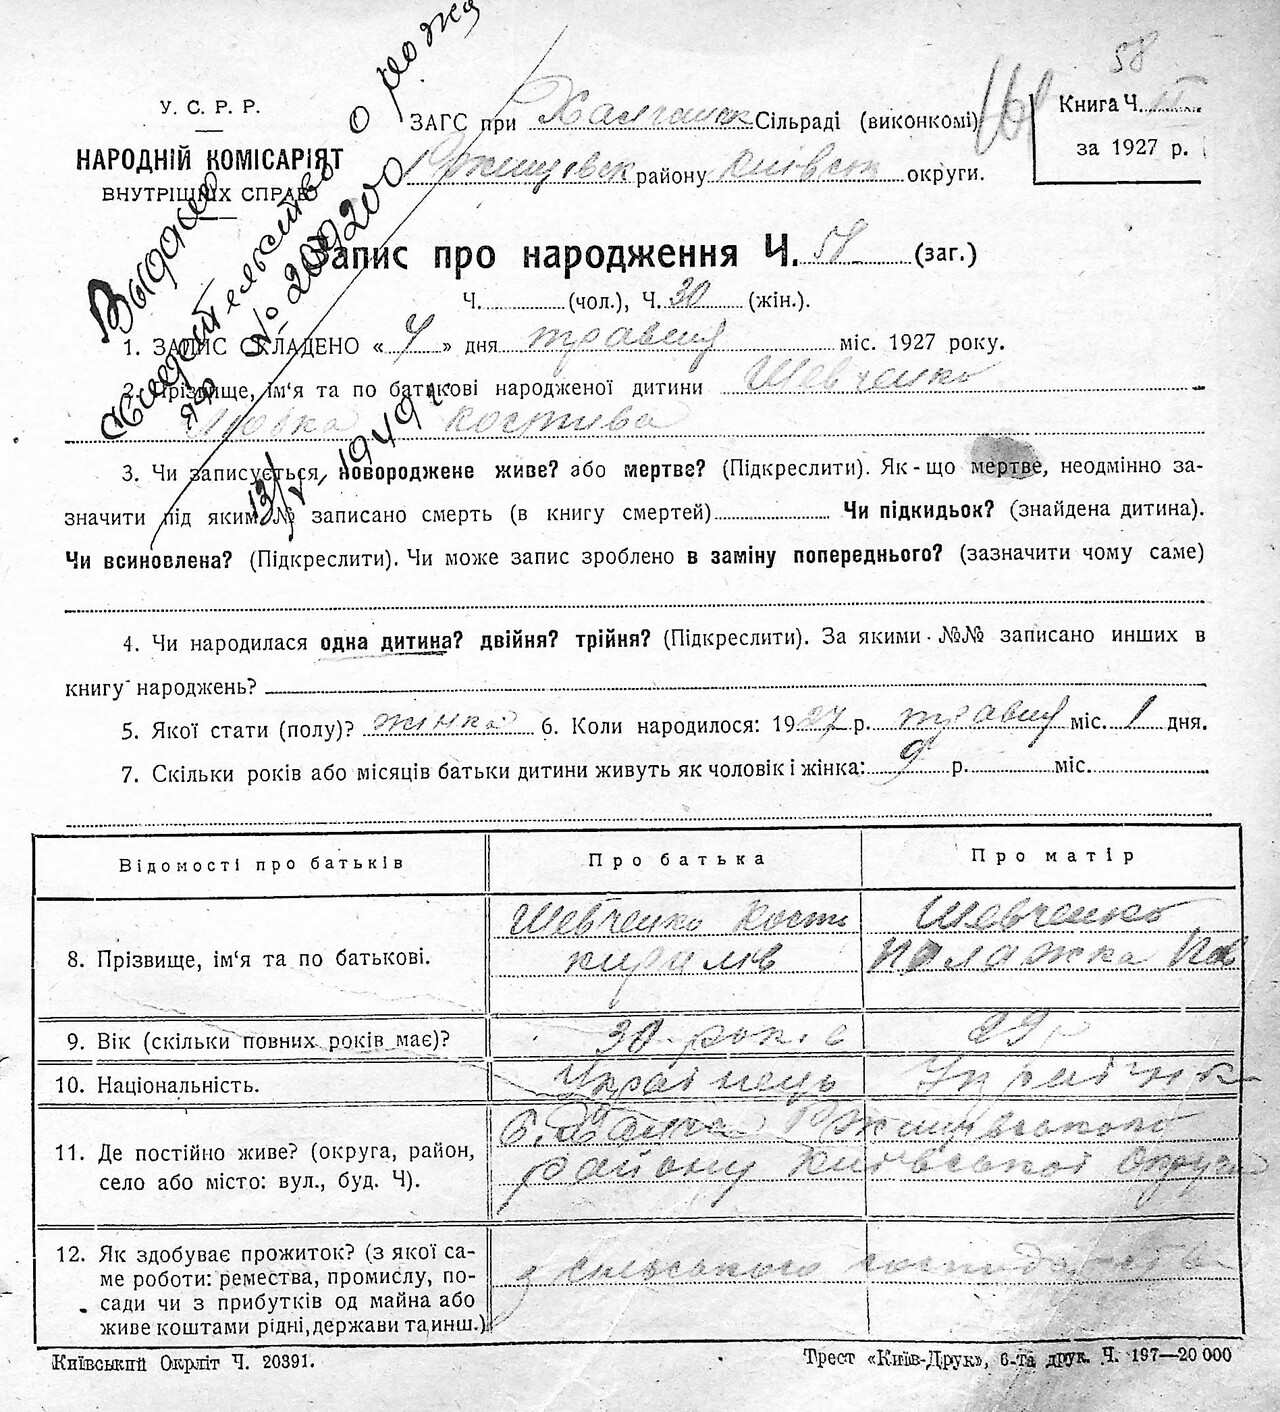 58
У. С. Р. Р.
НАРОДНІЙ КОМІСАРІЯТ
ВНУТРІШНІХ СПРАВ
ЗАГС при Сільраді (виконкомі)
району Київськ округи.
Книга Ч. II
за 1927 р.
Выдано
свидетельство о рожд
ЯР № 200200
13/V 1949 г.
Запис про народження Ч. 58 (заг.)
Ч. (чол.), Ч. 30 (жін.).
1. ЗАПИС СКЛАДЕНО « 4 » дня травня міс. 1927 року.
2. Прізвище, ім'я та по батькові народженої дитини Шевченко
Костива
3. Чи записується, новороджене живе? або мертве? (Підкреслити). Як-що мертве, неодмінно за-
значити під яким № записано смерть (в книгу смертей) Чи підкидьок? (знайдена дитина).
Чи всиновлена? (Підкреслити). Чи може запис зроблено в заміну попереднього? (зазначити чому саме)
4. Чи народилася одна дитина? двійня? трійня? (Підкреслити). За якими №№ записано инших в
книгу народжень?
5. Якої стати (полу)? жінка 6. Коли народилося: 1927 р. травня міс. 1 дня.
7. Скільки років або місяців батьки дитини живуть як чоловік і жінка: 9 р. міс.
Відомості про батьків Про батька Про матір
8. Прізвище, ім'я та по батькові. Шевченко Кость Шевченко
Палажка
9. Вік (скільки повних років має)? 30 років 29 р
10. Національність. Українець Українк
11. Де постійно живе? (округа, район, Ржищівського
село або місто: вул., буд. Ч). району Київської Округи
12. Як здобуває прожиток? (з якої са-
ме роботи: ремества, промислу, по- з сільського господарства
сади чи з прибутків од майна або
живе коштами рідні, держави та инш.)
Київський Окрліт Ч. 20391.
Трест «Київ-Друк», 6-та друк. Ч. 197—20 000